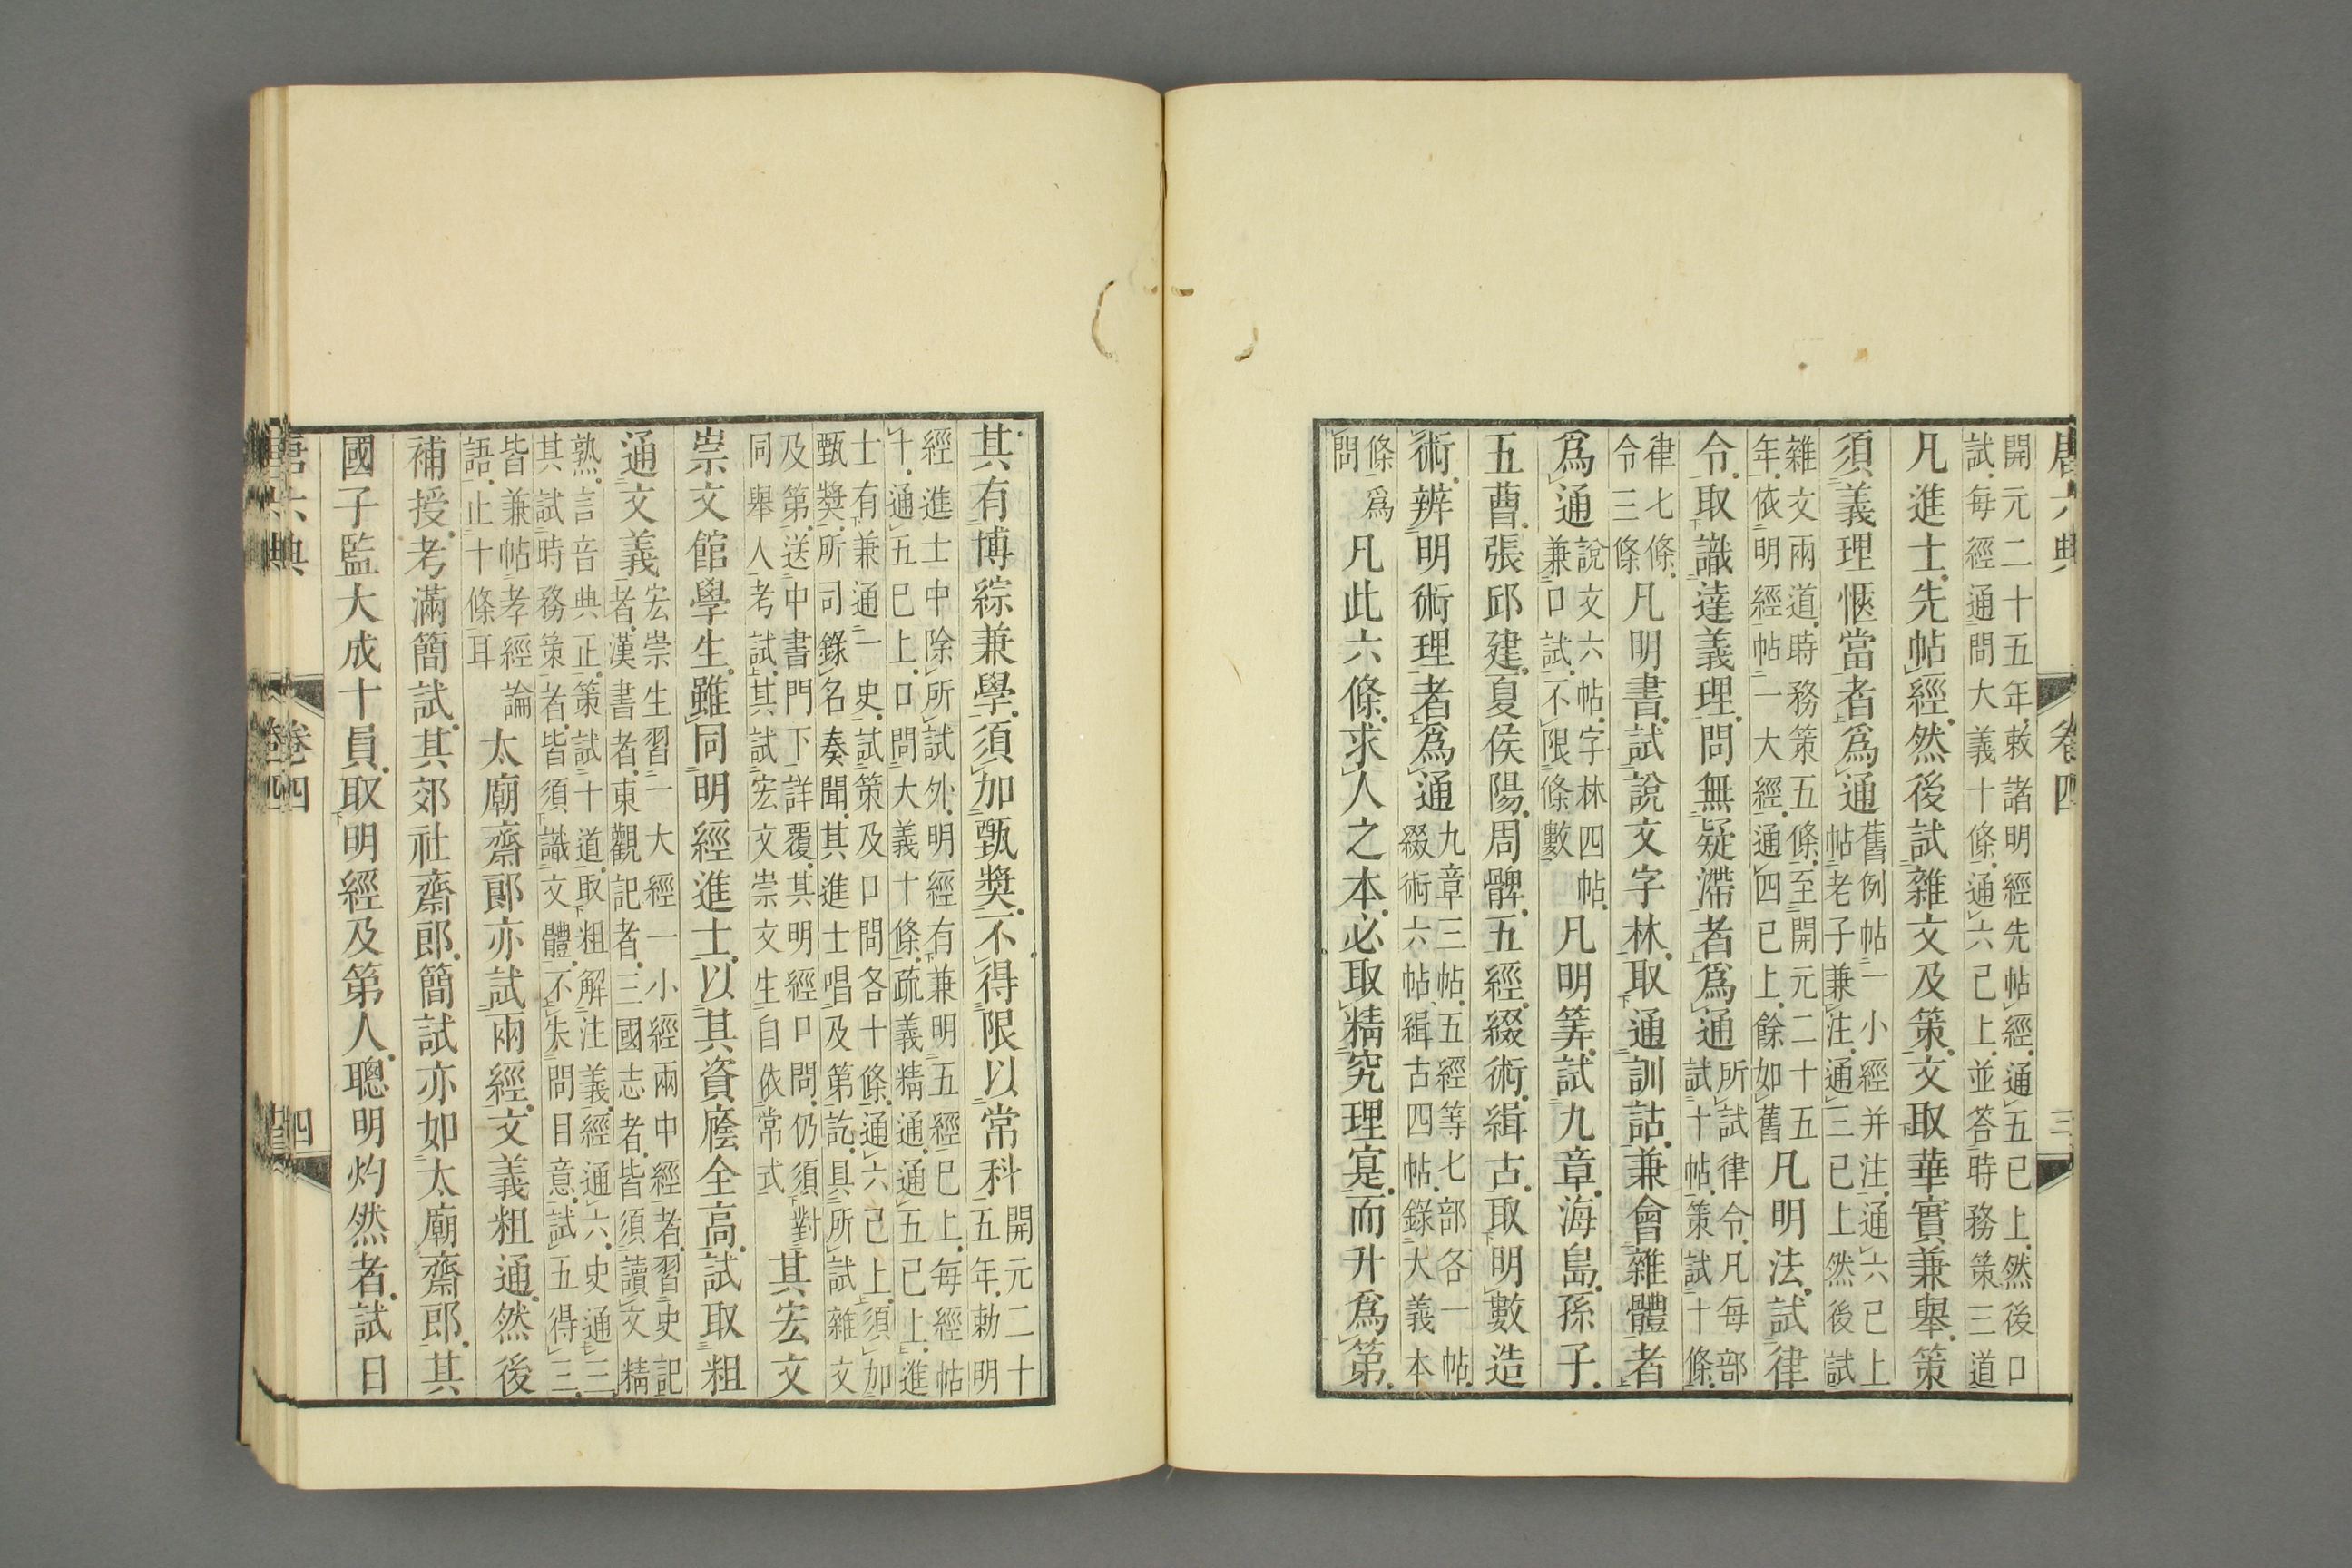 唐六典 卷四 三
開元二十五年敕諸明經先帖經通五已上然後口
試每經通問大義十條通六已上並答時務策三道
凡進士先帖經然後試雜文及策文取華實兼舉策
須義理愜當者爲通 舊例帖一小經并注通六已上 帖老子兼注通三已上然後試
雜文兩道時務策五條至開元二十五 年依明經帖一大經通四已上餘如舊 凡明法試律
令取識達義理問無疑滯者爲通 所試律令凡每部 試十帖策試十條
律七條 令三條 凡明書試說文字林取通訓詁兼會雜體者
爲通 說文六帖字林四帖 兼口試不限條數 凡明筭試九章海島孫子
五曹張邱建夏侯陽周髀五經綴術緝古取明數造
術辨明術理者爲通 九章三帖五經等七部各一帖 綴術六帖緝古四帖錄大義本
條爲 問 凡此六條求人之本必取精究理寔而升爲第
其有博綜兼學須加甄獎不得限以常科 開元二十 五年勅明
經進士中除所試外明經有兼明五經已上每經帖
十通五已上口問大義十條疏義精通通五已上進
士有兼通一史試策及口問各十條通六已上須加
甄獎所司錄名奏聞其進士唱及第訖具所試雜文
及第送中書門下詳覆其明經口問仍須對 同舉人考試其試宏文崇文生自依常式 其宏文
崇文館學生雖同明經進士以其資廕全高試取粗
通文義 宏崇生習一大經一小經兩中經者習史記 者漢書者東觀記者三國志者皆須讀文精
熟言音典正策試十道取粗解注義經通六史通三
其試時務策者皆須識文體不失問目意試五得三
皆兼帖孝經論 語止十條耳 太廟齋郎亦試兩經文義粗通然後
補授考滿簡試其郊社齋郎簡試亦如太廟齋郎其
國子監大成十員取明經及第人聰明灼然者試日
唐六典 卷四 四